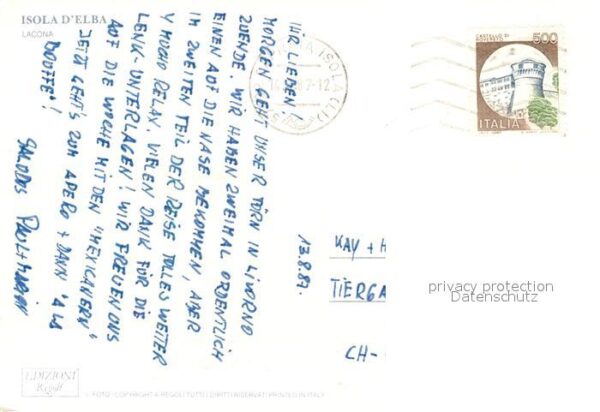 ISOLA D'ELBA
LACONA
IHR LIEBEN!
MORGEN GEHT UNSER TÖRN IN LIVORNO
ZUENDE. WIR HABEN ZWEIMAL ORDENTLICH
EINEN AUF DIE NASE BEKOMMEN, ABER
IM ZWEITEN TEIL DER REISE TOLLES WETTER
Y MUCHO RELAX. VIELEN DANK FÜR DIE
LENK-UNTERLAGEN! WIR FREUEN UNS
AUF DIE WOCHE MIT DEN "MEXICANERN"
JETZT GEHT'S ZUM APERO + DANN "A LA
BOUFFE"!
SALUDOS
13.8.87.
500
CASTELLO DI
ITALIA
KAY + H
TIERGA
CH-
privacy protection
Datenschutz
EDIZIONI
Regoli
FOTO - COPYRIGHT A. REGOLI TUTTI I DIRITTI RISERVATI PRINTED IN ITALY